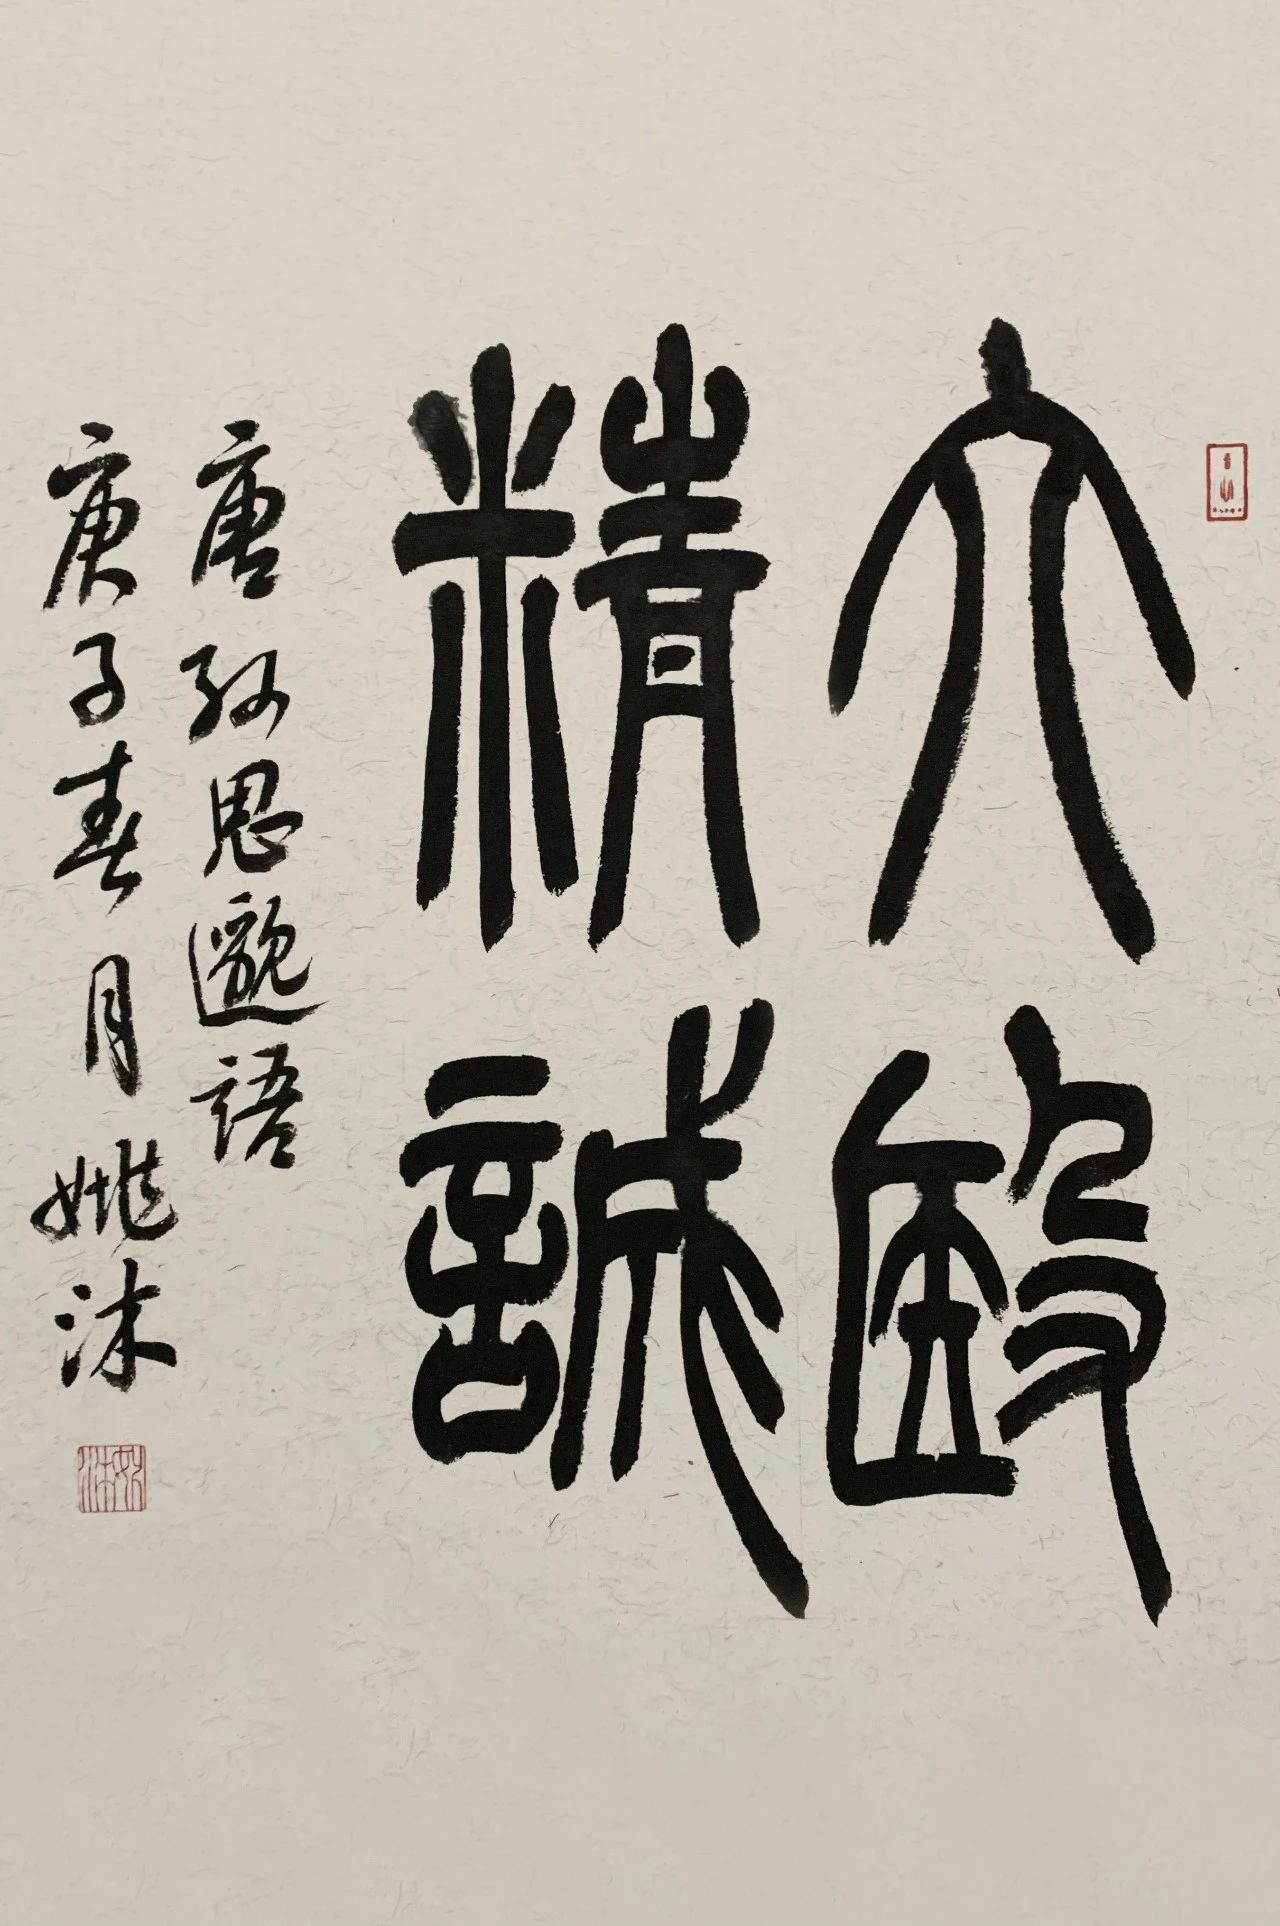 大殹
精誠
唐孙思邈語
庚子春月姚沐